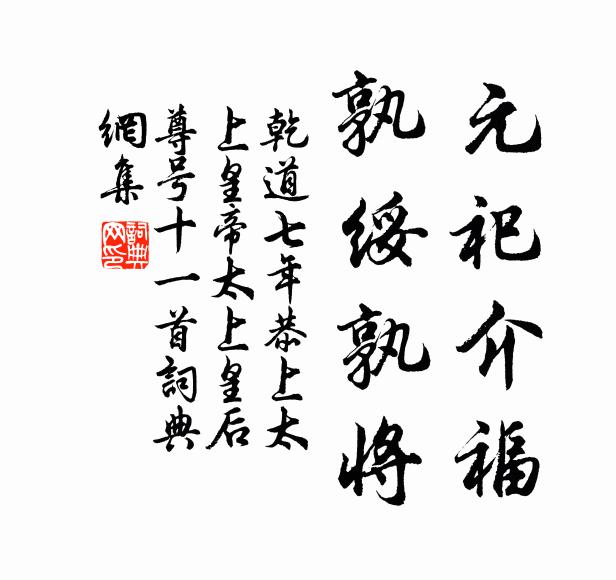 元祀介福
孰綏孰將
乾道七年恭上太
上皇帝太上皇后
尊号十一首詞典
網集
詞典网印